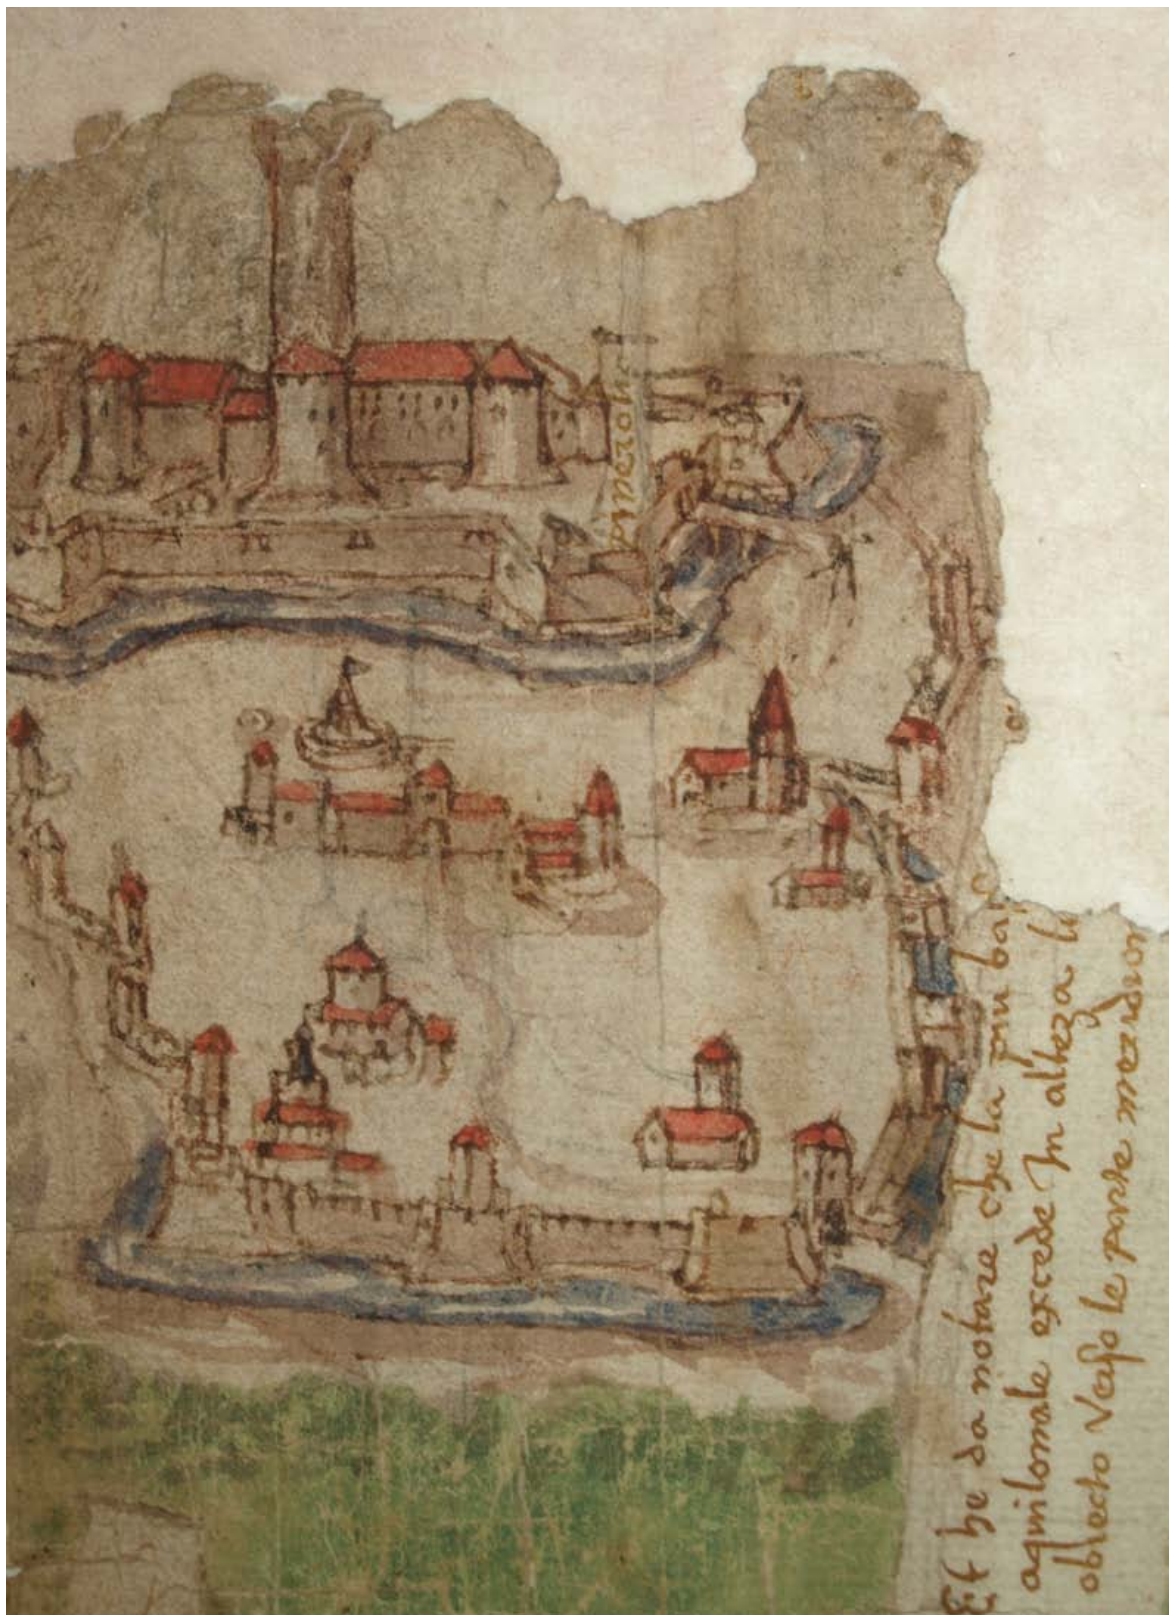 Et he da notare che la piu bas
aquilonale excede In alteza li
obiecto Verso le parte meridion